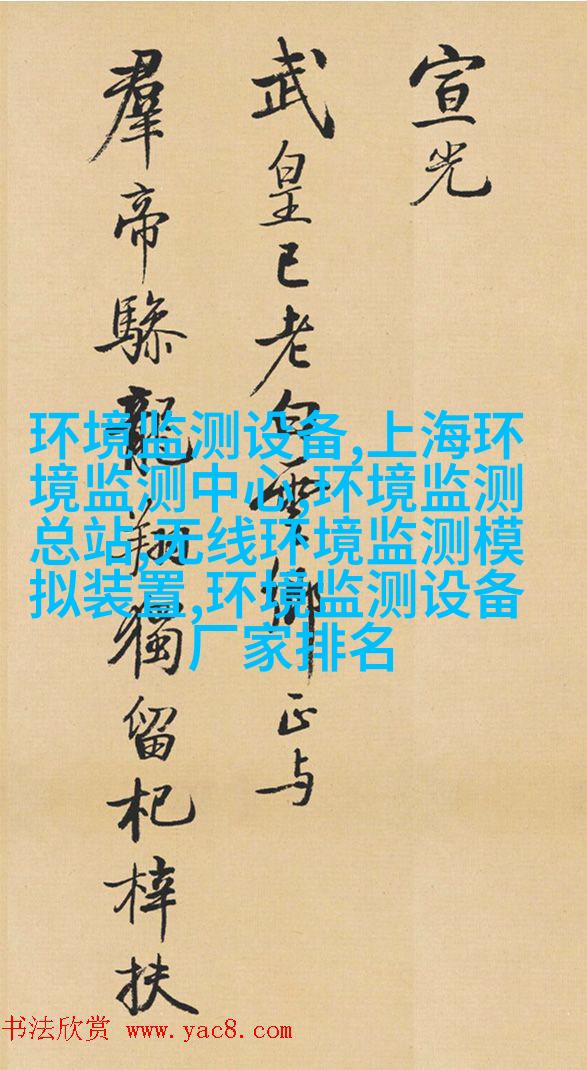 宣光
武皇已老白雲鄉正与
羣帝驂龍翔獨留杞梓扶
环境监测设备,上海环
境监测中心,环境监测
总站,无线环境监测模
拟装置,环境监测设备
厂家排名
书法欣赏 www.yac8.com